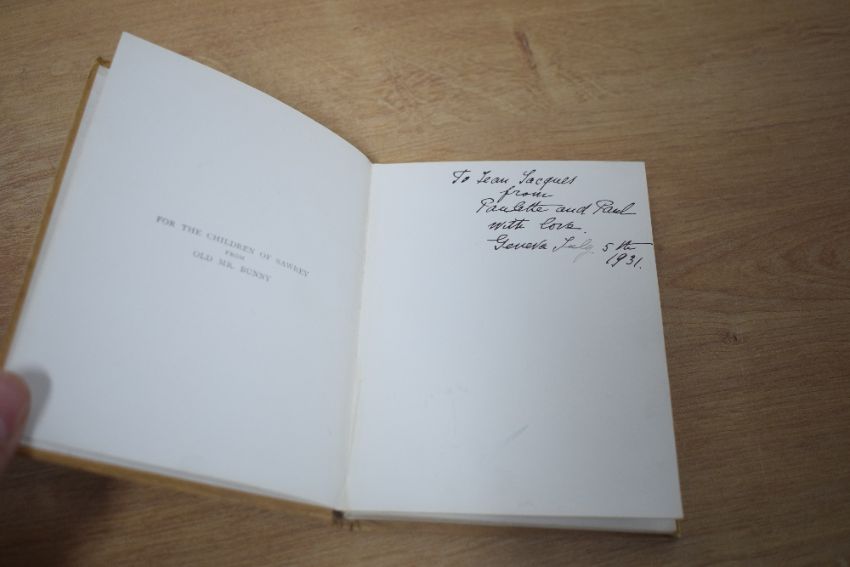 FOR THE CHILDREN OF SAWREY
FROM
OLD MR. BUNNY
To Jean Jacques
from
Paulette and Paul
with love.
Geneva July 5th
1931.